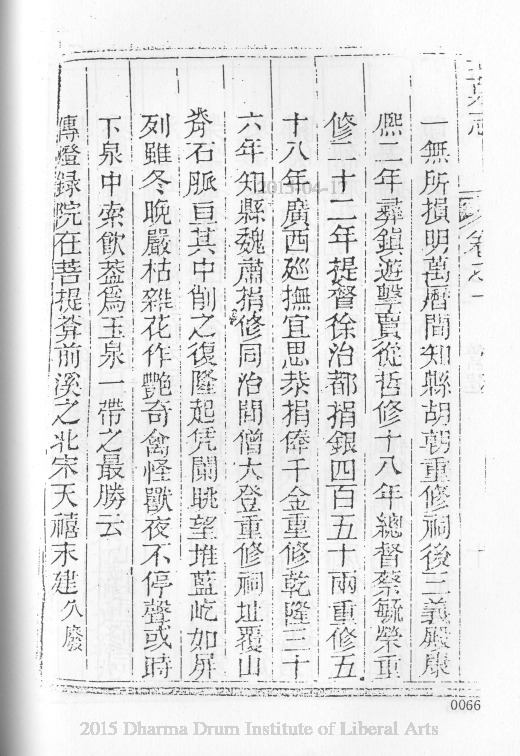 玉泉志 卷之一
一無所損明萬曆間知縣胡朝重修祠後三義殿康
熙二年彝鎮遊擊賈從哲修十八年總督蔡毓榮重
修二十二年提督徐治都捐銀四百五十兩重修五
十八年廣西廵撫宜思恭捐俸千金重修乾隆三十
六年知縣魏肅捐修同治間僧大登重修祠址覆山
脊石脈亘其中削之復隆起凭闌眺望堆藍屹如屏
列雖冬晚嚴枯雜花作艷奇禽怪獸夜不停聲或時
下泉中索飲葢爲玉泉一帶之最勝云
傳燈録院在菩提莽前溪之北宋天禧末建久廢
2015-04-17
0066
2015 Dharma Drum Institute of Liberal Arts